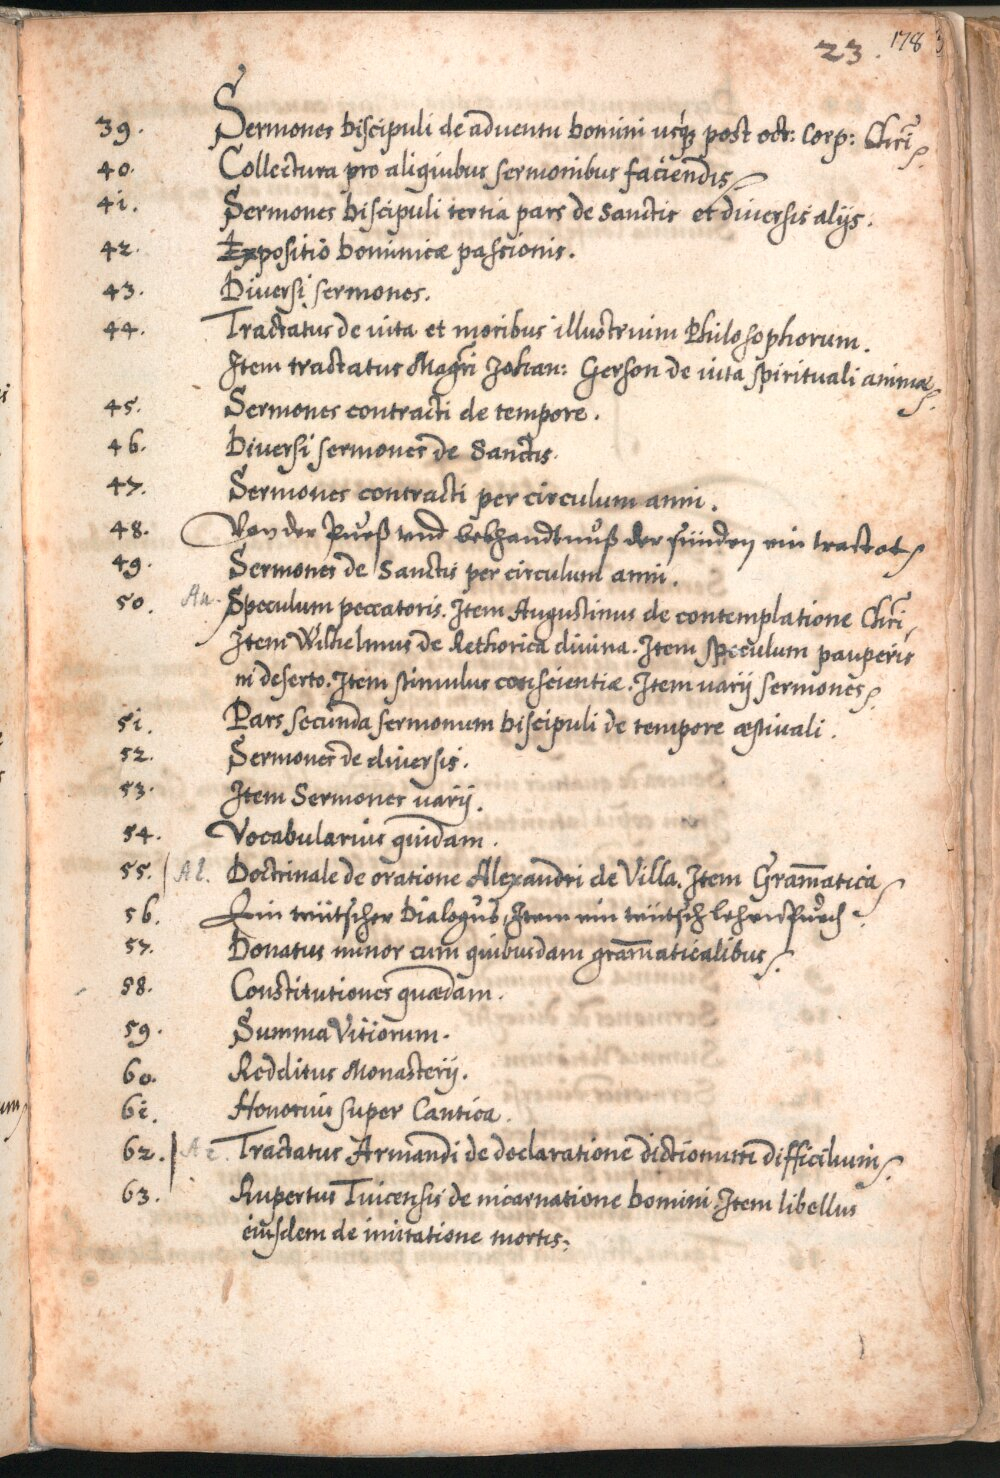 23. 178
39. Sermones discipuli de adventu domini usque post oct: Corp: Chri̅
40. Collectura pro aliquibus sermonibus faciendis
41. Sermones discipuli tertia pars de Sanctis et diversis alijs.
42. Expositio dominicæ passionis.
43. Diversi sermones.
44. Tractatus de vita et moribus illustrium Philosophorum.
Item tractatus Magr̅i Johan: Gerson de vita spirituali animæ.
45. Sermones contracti de tempore.
46. Diversi sermones de Sanctis.
47. Sermones contracti per circulum anni.
48. Von der Pueß und der sünden ein tractat
49. Sermones de Sanctis per circulum anni.
50. Au. Speculum peccatoris. Item Augustinus de contemplatione Chri̅.
Item Wilhelmus de Rethorica divina. Item speculum pauperis
in deserto. Item stimulus conscientiæ. Item varij sermones.
51. Pars secunda sermonum discipuli de tempore æstivali.
52. Sermones de diversis.
53. Item Sermones varij.
54. Vocabularius quidam.
55. Al. Doctrinale de oratione Alexandri de Villa. Item Gram̅atica
56. Ein teütscher Dialogus, Item ein teütsch
57. Donatus minor cum quibusdam gram̅aticalibus.
58. Constitutiones quædam.
59. Summa Vitiorum.
60. Redditus Monasterij.
61. Honorius super Cantica.
62. Tractatus Armandi de declaratione dictionum difficilium.
63. Rupertus Tuicensis de incarnatione Domini. Item libellus
eiusdem de imitatione mortis.